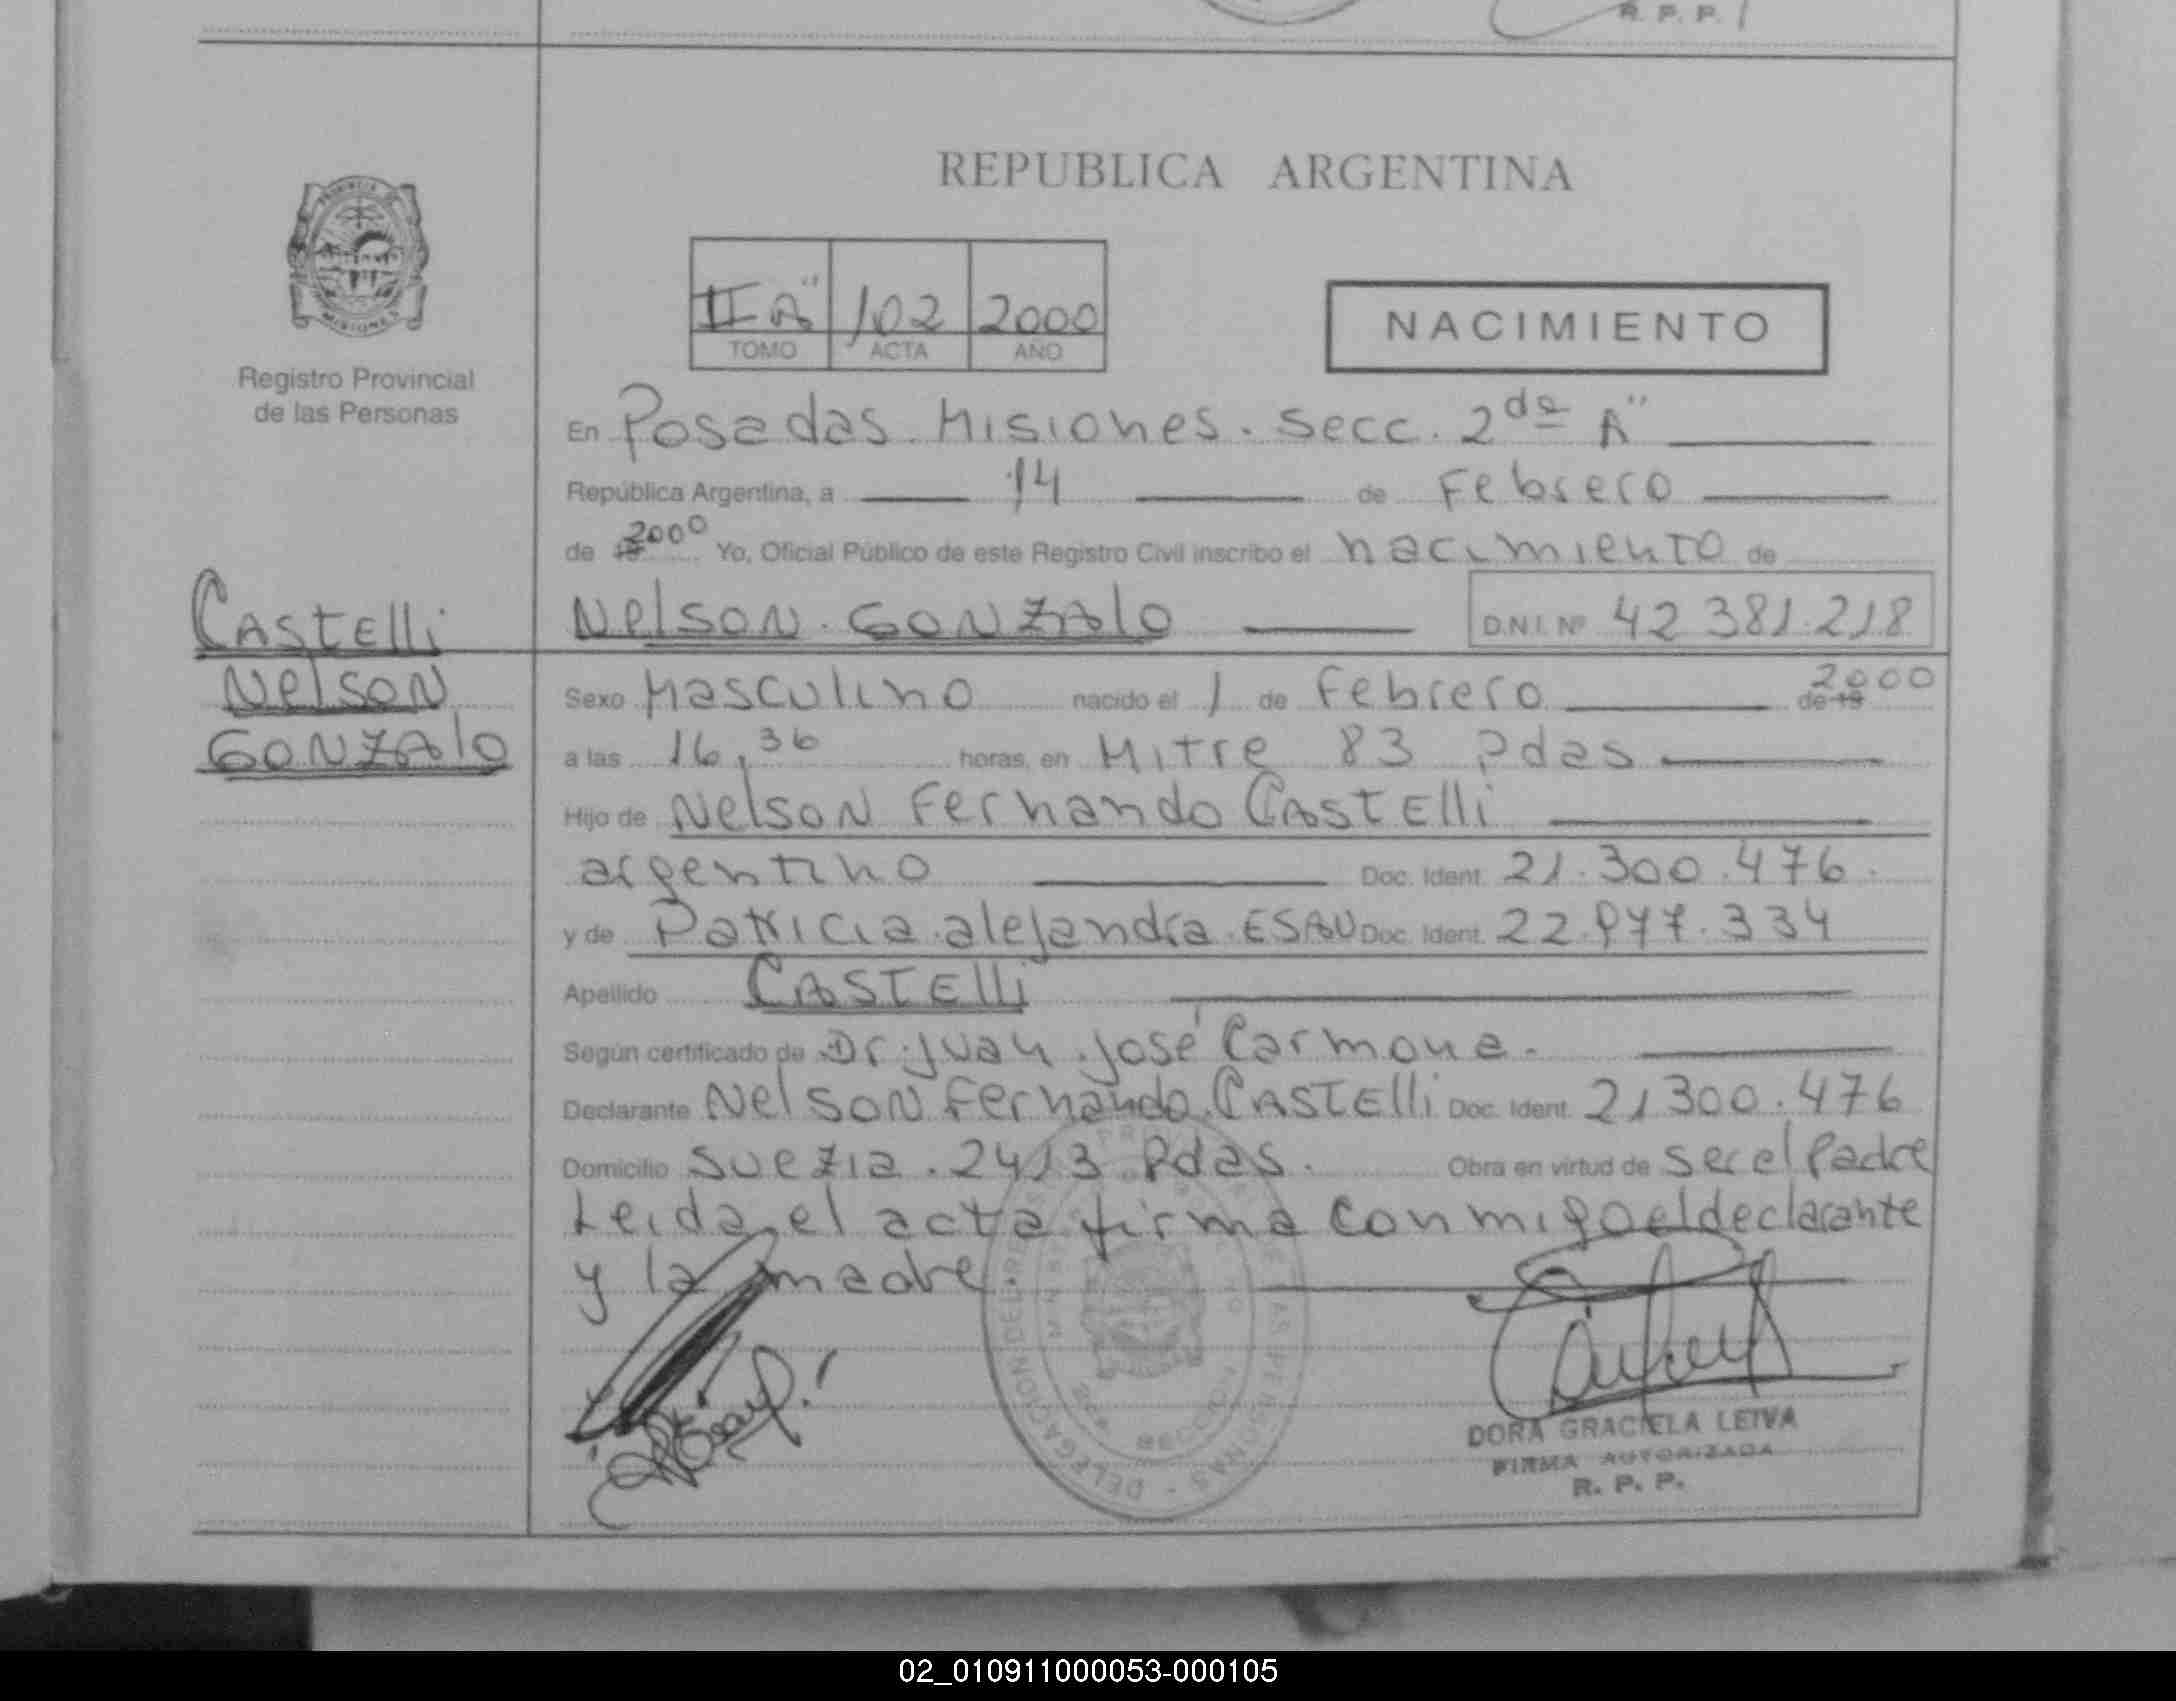 R. P. P.
REPUBLICA ARGENTINA
PROVINCIA DE
MISIONES
Registro Provincial
de las Personas
II A" 102 2000
TOMO ACTA AÑO
NACIMIENTO
En Posadas. Misiones. Secc. 2da A"
República Argentina, a 14 de Febrero
de 19 2000 Yo, Oficial Público de este Registro Civil inscribo el nacimiento de
Nelson. GONZAlo D.N.I. Nº 42 381.218
CAStElli
NelsoN
GONZAlo
Sexo Masculino nacido el 1 de Febrero de 19 2000
a las 16,36 horas, en Mitre 83 Pdas
Hijo de NelsoN Fernando CAStElli
argentino Doc. Ident. 21.300.476.
y de Patricia. alejandra. ESAU Doc. Ident. 22.977.334
Apellido CASTElli
Según certificado de Dr. Juan. José Carmona.
Declarante NelsoN Fernando. CASTElli Doc. Ident. 21300.476
Domicilio Suezia. 2413 Pdas. Obra en virtud de ser el Padre
Leida, el acta firma conmigo el declarante
y la madre
DORA GRACIELA LEIVA
FIRMA AUTORIZADA
R. P. P.
02_010911000053-000105